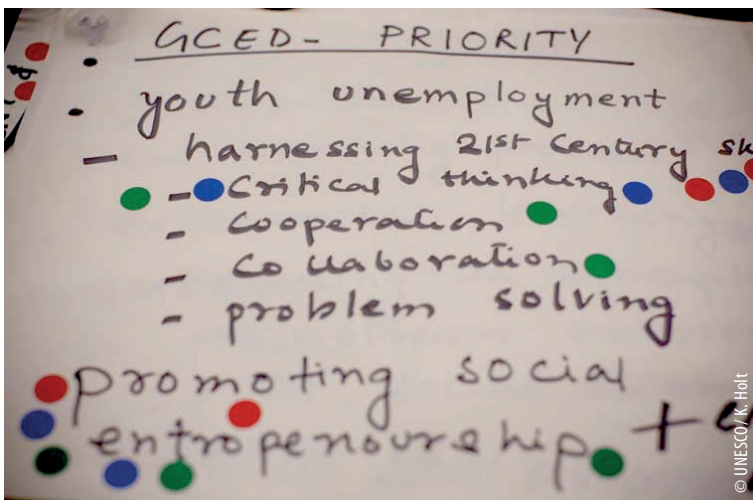 GCED - PRIORITY
• youth unemployment
- harnessing 21st Century sk
- Critical thinking
- Cooperation
- Collaboration
- problem solving
promoting social
entropenourship +
© UNESCO/K. Holt